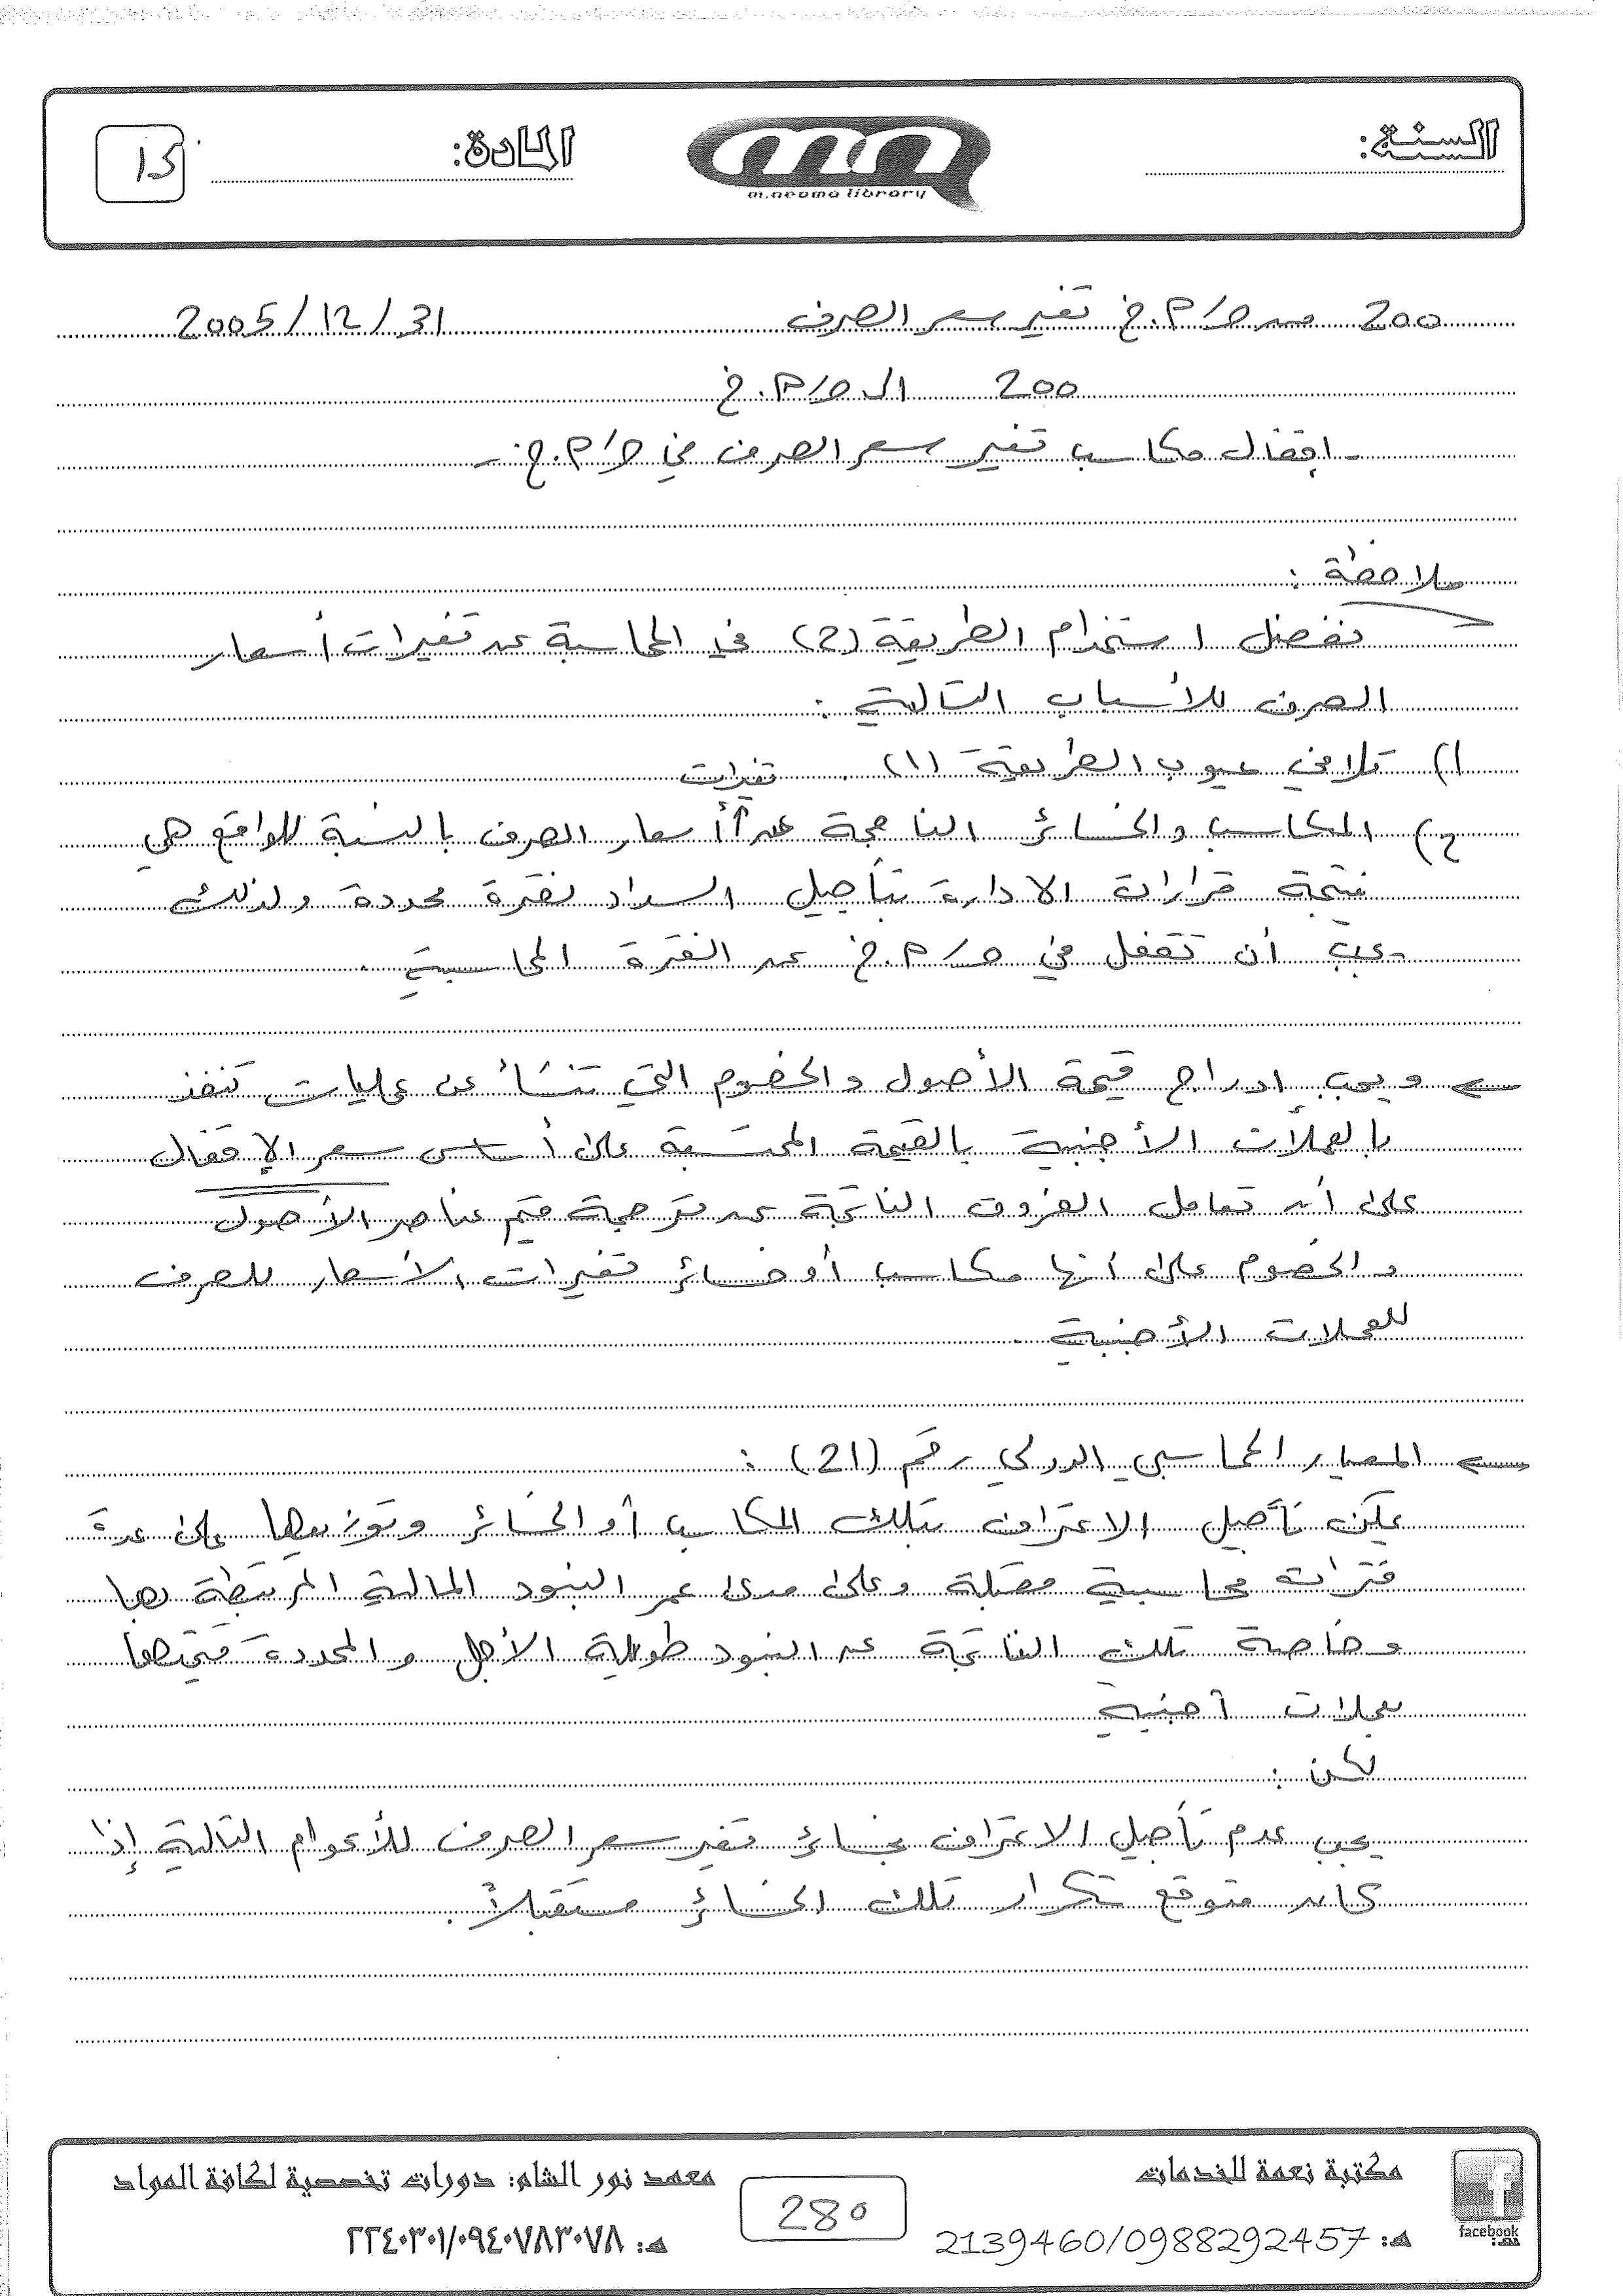 السنة:
m.neama library
المادة:
15
200 من ح/ أ.خ تغير سعر الصرف 31/12/2005
200 الى ح/ أ.خ
- إقفال مكاسب تغير سعر الصرف في ح/ أ.خ -
ملاحظة:
نفضل استخدام الطريقة (2) في المحاسبة عن تغيرات أسعار
الصرف للأسباب التالية:
1) تلافي عيوب الطريقة (1).
2) المكاسب والخسائر الناجمة عن تغيرات أسعار الصرف بالنسبة للواقع هي
نتيجة قرارات الادارة بتأجيل السداد لفترة محددة ولذلك
يجب أن تقفل في ح/ أ.خ عن الفترة المحاسبية.
ويجب إدراج قيمة الأصول والخصوم التي تنشأ عن عمليات تنفذ
بالعملات الأجنبية بالقيمة المحتسبة على أساس سعر الإقفال
على أن تعامل الفروق الناتجة عن ترجمة قيم عناصر الأصول
والخصوم على أنها مكاسب أو خسائر تغيرات الأسعار للصرف
للعملات الأجنبية.
المعيار المحاسبي الدولي رقم (21):
يمكن تأجيل الاعتراف بتلك المكاسب أو الخسائر وتوزيعها على عدة
فترات محاسبية مقبلة وعلى مدى عمر البنود المالية المرتبطة بها
وخاصة تلك الناتجة عن البنود طويلة الأجل والمحددة قيمتها
بعملات أجنبية
لكن:
يجب عدم تأجيل الاعتراف بخسائر تغير سعر الصرف للأعوام التالية إذا
كان متوقع تكرار تلك الخسائر مستقبلاً.
مكتبة نعمة للخدمات
هـ: 2139460/0988292457
facebook
نعمة
280
معهد نور الشام: دورات تخصصية لكافة المواد
هـ: ٢٢٤٠٣٠١/٠٩٤٠٧٨٣٠٧٨